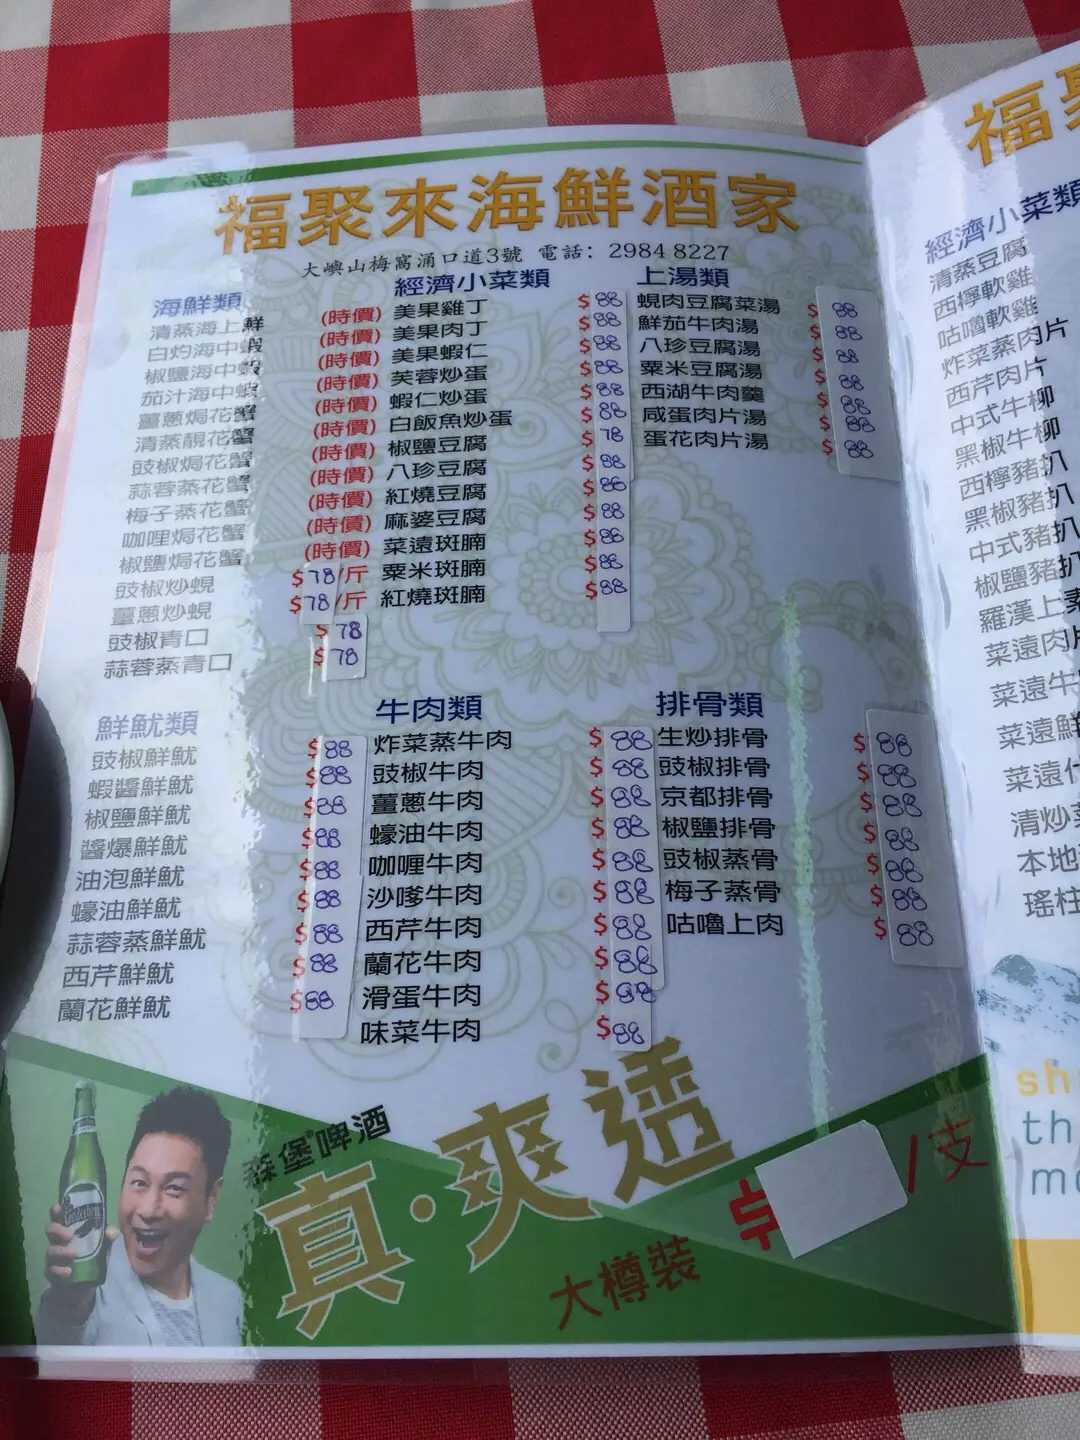 福聚來海鮮酒家
大嶼山梅窩涌口道3號 電話: 2984 8227
海鮮類
清蒸海上鮮 (時價)
白灼海中蝦 (時價)
椒鹽海中蝦 (時價)
茄汁海中蝦 (時價)
薑蔥焗花蟹 (時價)
清蒸靚花蟹 (時價)
豉椒焗花蟹 (時價)
蒜蓉蒸花蟹 (時價)
梅子蒸花蟹 (時價)
咖哩焗花蟹 (時價)
椒鹽焗花蟹 (時價)
豉椒炒蜆 $78/斤
薑蔥炒蜆 $78/斤
豉椒青口 $78
蒜蓉蒸青口 $78
經濟小菜類
美果雞丁 $88
美果肉丁 $88
美果蝦仁 $88
芙蓉炒蛋 $88
蝦仁炒蛋 $88
白飯魚炒蛋 $78
椒鹽豆腐 $88
八珍豆腐 $88
紅燒豆腐 $88
麻婆豆腐 $88
菜遠斑腩 $88
粟米斑腩 $88
紅燒斑腩
上湯類
蜆肉豆腐菜湯 $88
鮮茄牛肉湯 $88
八珍豆腐湯 $88
粟米豆腐湯 $88
西湖牛肉羹 $88
咸蛋肉片湯 $88
蛋花肉片湯 $88
鮮魷類
豉椒鮮魷 $88
蝦醬鮮魷 $88
椒鹽鮮魷 $88
醬爆鮮魷 $88
油泡鮮魷 $88
蠔油鮮魷 $88
蒜蓉蒸鮮魷 $88
西芹鮮魷 $88
蘭花鮮魷 $88
牛肉類
炸菜蒸牛肉 $88
豉椒牛肉 $88
薑蔥牛肉 $88
蠔油牛肉 $88
咖喱牛肉 $88
沙嗲牛肉 $88
西芹牛肉 $88
蘭花牛肉 $88
滑蛋牛肉 $88
味菜牛肉 $88
排骨類
生炒排骨 $88
豉椒排骨 $88
京都排骨 $88
椒鹽排骨 $88
豉椒蒸骨 $88
梅子蒸骨 $88
咕嚕上肉 $88
森堡啤酒
真·爽透
大樽裝 $ /支
福聚
經濟小菜類
清蒸豆腐
西檸軟雞
咕嚕軟雞
炸菜蒸肉片
西芹肉片
中式牛柳
黑椒牛柳
西檸豬扒
黑椒豬扒
中式豬扒
椒鹽豬扒
羅漢上素
菜遠肉片
菜遠牛
菜遠鮮
菜遠
清炒
本地
瑤柱
sh
th
mo